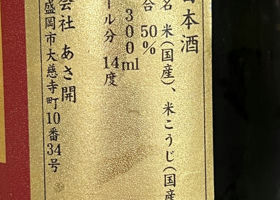 日本酒
名 米(国産)、米こうじ(国産
合 50%
300ml
ール分 14度
会社 あさ開
盛岡市大慈寺町10番34号